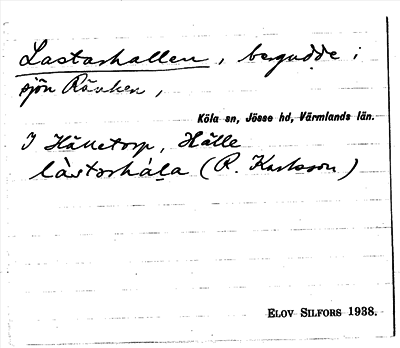 Lastarhallen, bergudde i
sjön Rävken,
Köla sn, Jösse hd, Värmlands län.
I Hälletorp, Hälle
(R. Karlsson)
ELOV SILFORS 1938.